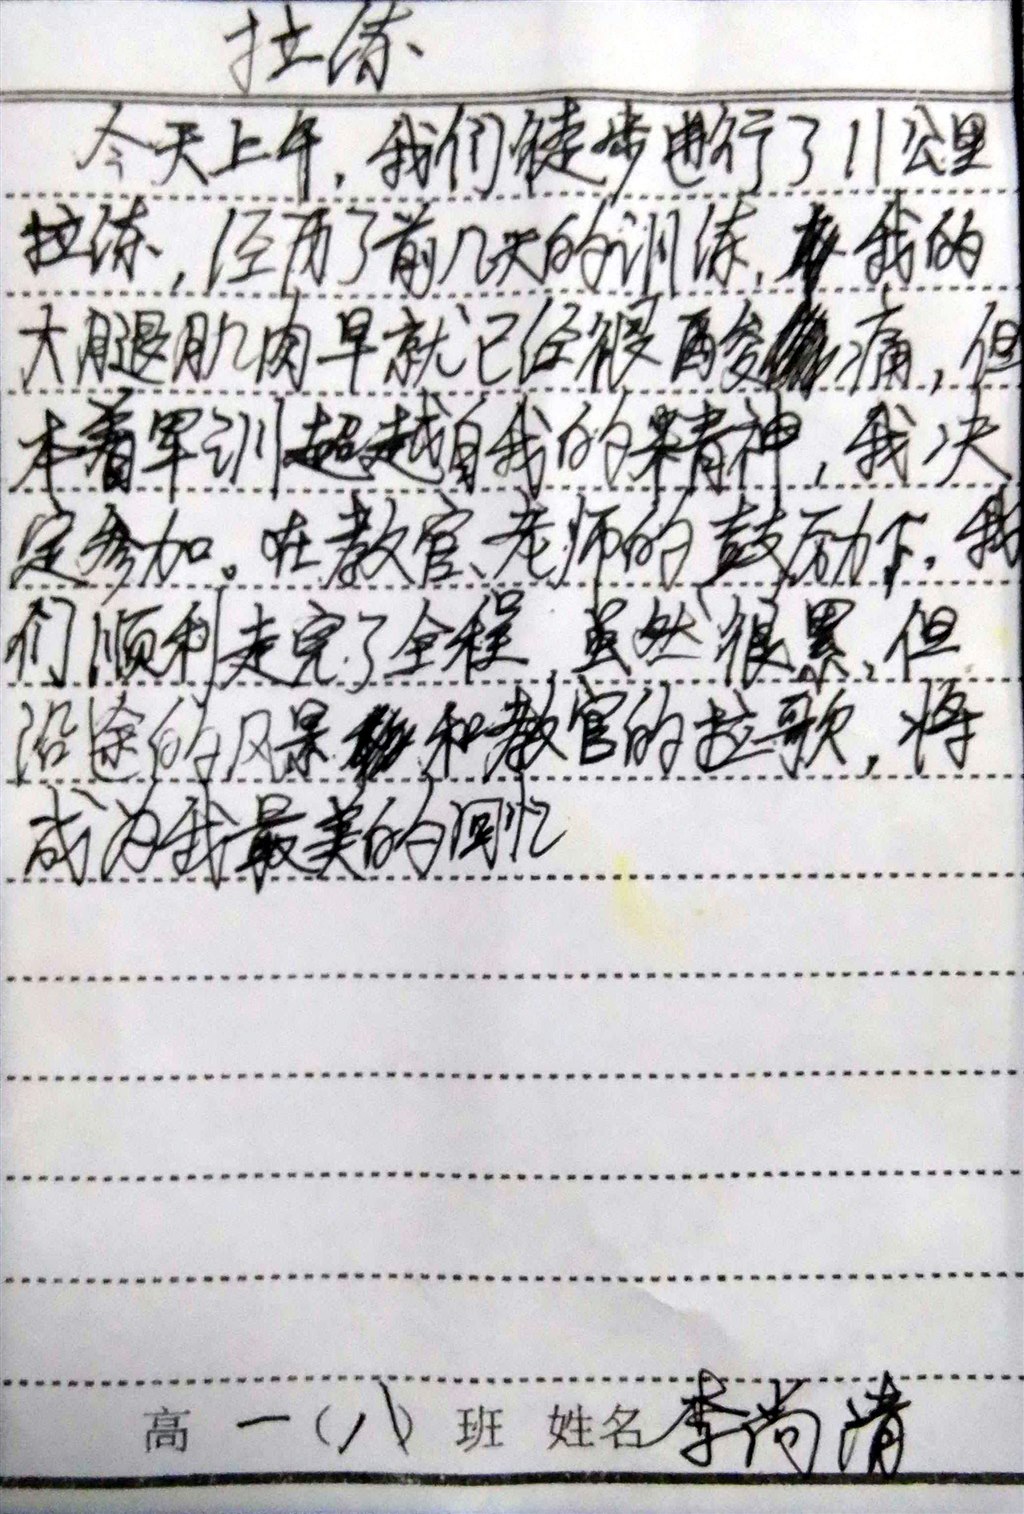 拉练
今天上午，我们徒步进行了11公里
拉练，经历了前几天的训练，我的
大腿肌肉早就已经很酸痛，但
本着军训超越自我的精神，我决
定参加。在教官、老师的鼓励下，我
们顺利走完了全程，虽然很累，但
沿途的风景和教官的拉歌，将
成为我最美的回忆
高一（八）班 姓名李尚清